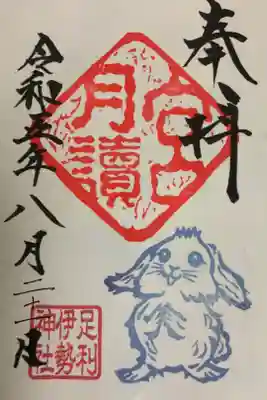 奉拝
月讀宮
令和五年八月
足利
伊勢
神社